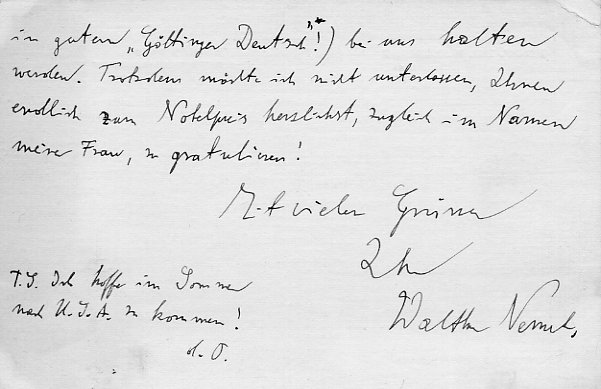 in gutem „Göttinger Deutsch"!) bei uns halten
werden. Trotzdem möchte ich nicht unterlassen, Ihnen
endlich zum Nobelpreis herzlichst, zugleich im Namen
meiner Frau, zu gratulieren!
Mit vielen Grüssen
Ihr
Walther Nernst.
P.S. Ich hoffe im Sommer
nach U.S.A. zu kommen!
d. O.